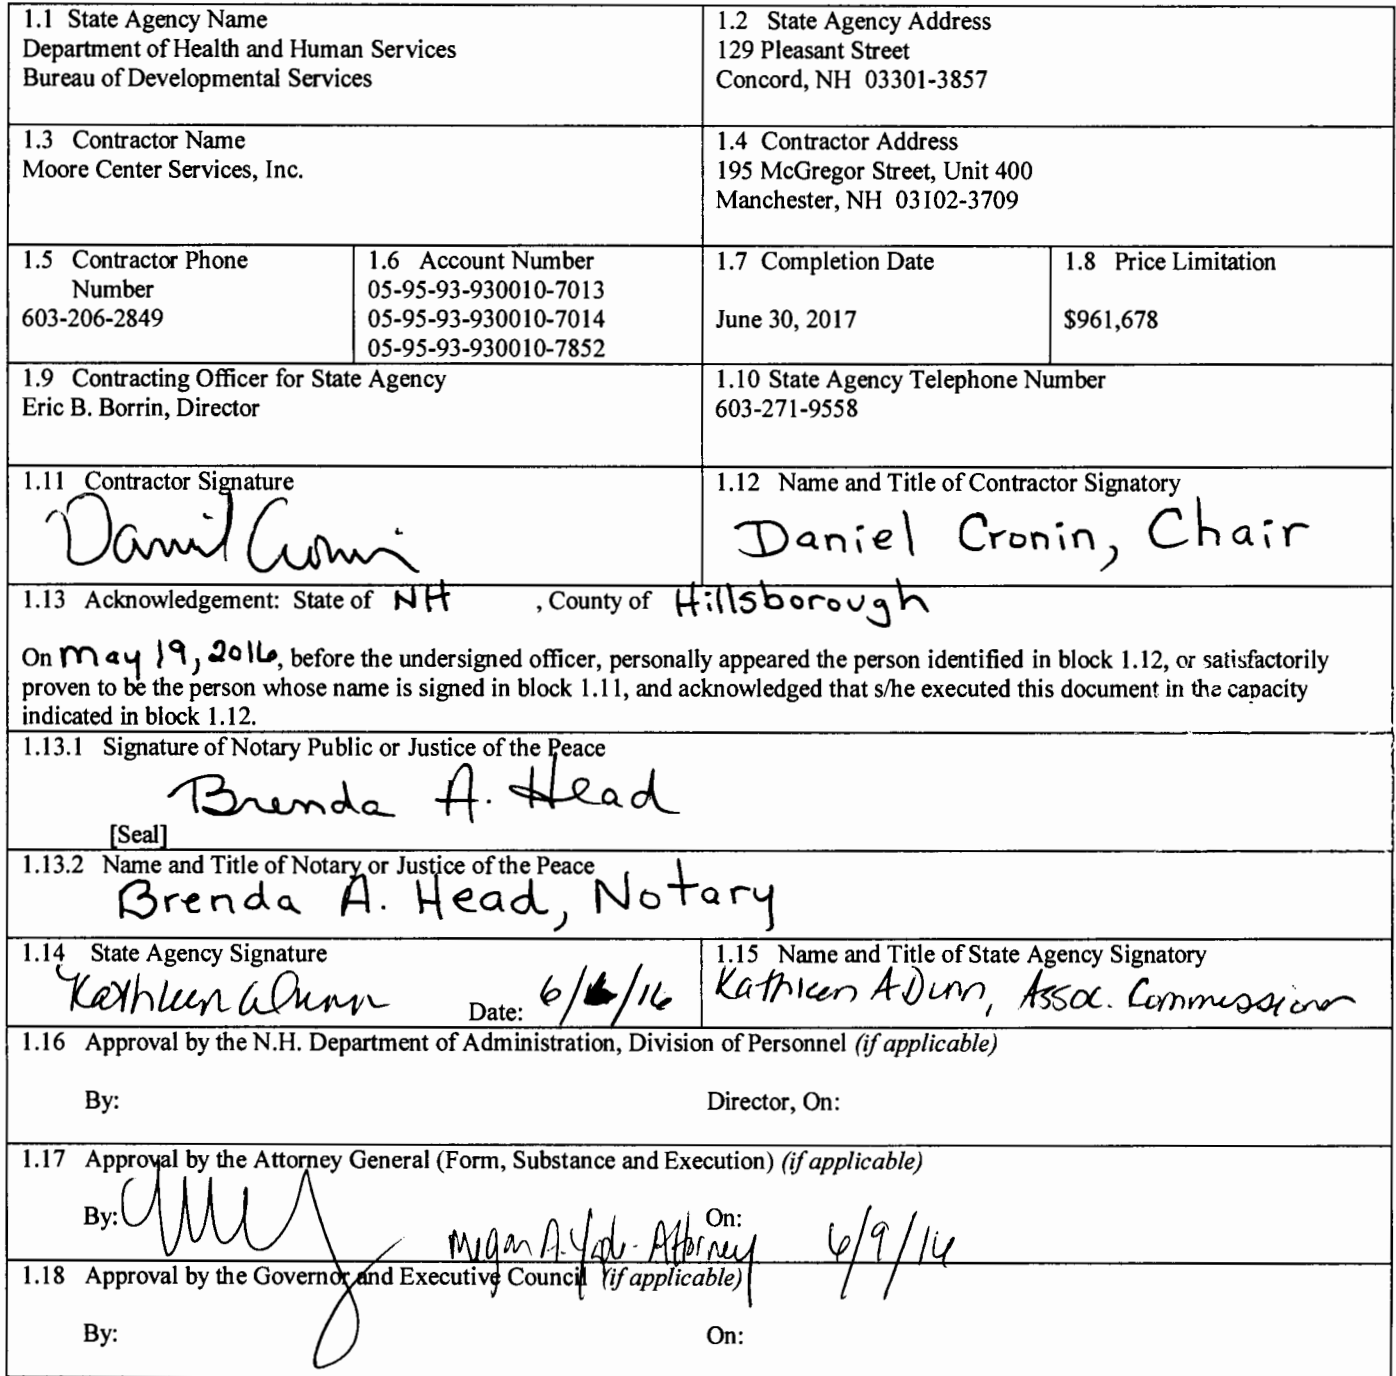 1.1 State Agency Name
Department of Health and Human Services
Bureau of Developmental Services
1.2 State Agency Address
129 Pleasant Street
Concord, NH 03301-3857
1.3 Contractor Name
Moore Center Services, Inc.
1.4 Contractor Address
195 McGregor Street, Unit 400
Manchester, NH 03102-3709
1.5 Contractor Phone
Number
603-206-2849
1.6 Account Number
05-95-93-930010-7013
05-95-93-930010-7014
05-95-93-930010-7852
1.7 Completion Date
June 30, 2017
1.8 Price Limitation
$961,678
1.9 Contracting Officer for State Agency
Eric B. Borrin, Director
1.10 State Agency Telephone Number
603-271-9558
1.11 Contractor Signature
Daniel Cronin
1.12 Name and Title of Contractor Signatory
Daniel Cronin, Chair
1.13 Acknowledgement: State of NH , County of Hillsborough
On May 19, 2016, before the undersigned officer, personally appeared the person identified in block 1.12, or satisfactorily
proven to be the person whose name is signed in block 1.11, and acknowledged that s/he executed this document in the capacity
indicated in block 1.12.
1.13.1 Signature of Notary Public or Justice of the Peace
Brenda A. Head
[Seal]
1.13.2 Name and Title of Notary or Justice of the Peace
Brenda A. Head, Notary
1.14 State Agency Signature
Kathleen A Dunn Date: 6/ /16
1.15 Name and Title of State Agency Signatory
Kathleen A Dunn, Assoc. Commissioner
1.16 Approval by the N.H. Department of Administration, Division of Personnel (if applicable)
By: Director, On:
1.17 Approval by the Attorney General (Form, Substance and Execution) (if applicable)
By: Megan A. - Attorney On: 6/9/16
1.18 Approval by the Governor and Executive Council (if applicable)
By: On: